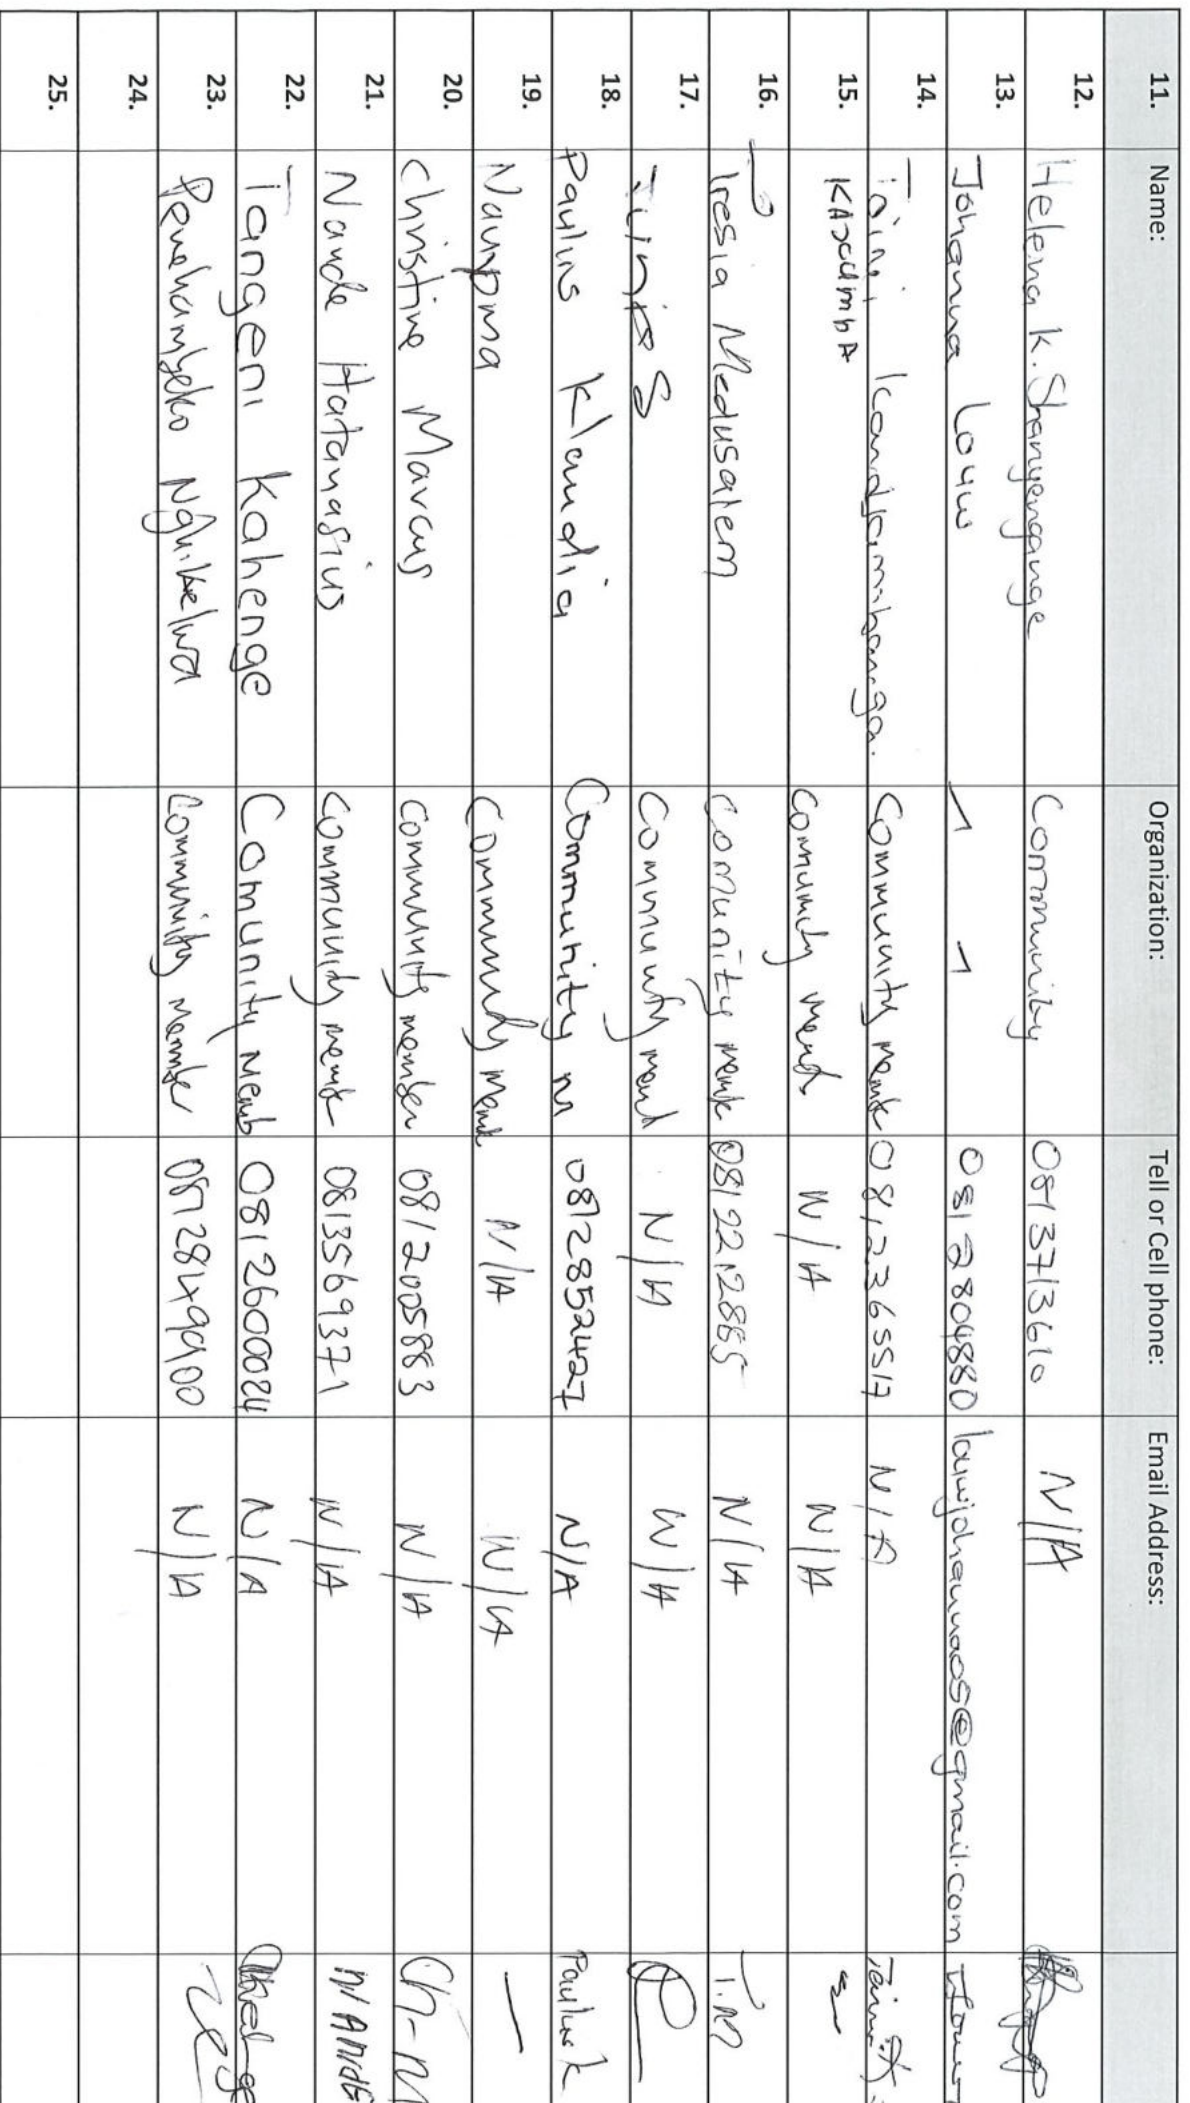 11. Name: Organization: Tell or Cell phone: Email Address:
12. Helena K. Shanyengange Community 0813713610 N/A
13. Johanna Louw 0812804880 louwjohanna05@gmail.com
14. Toini Kandjambanga. Community memb 0812365517 N/A
15. KAJCUMbA Community memb N/A N/A
16. Iresia Medusalem Comunity memb 0812212885 N/A T.M
17. Community memb N/A N/A
18. Paulus Klaudia Community m 0812852427 N/A Paulus k
19. Naupma Community Memb N/A N/A
20. Christine Marcus Community member 0812005883 N/A Ch-M
21. Nande Hatanasius Community memb 0813569371 N/A NANdE
22. Tangeni Kahenge Comunity Memb 0812600024 N/A
23. Penehambeko Nghikelwa Community Member 0812849900 N/A
24.
25.